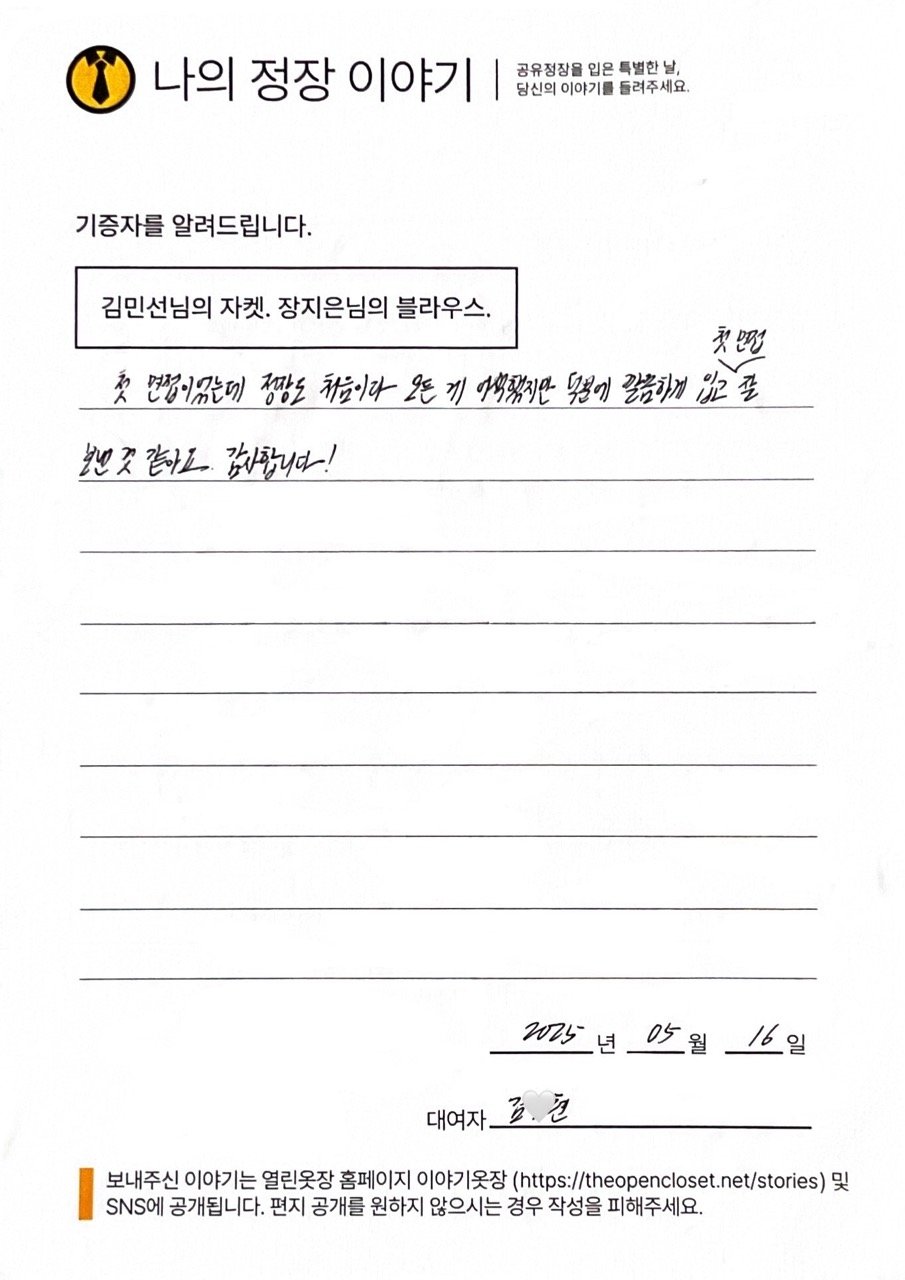 나의 정장 이야기
공유정장을 입은 특별한 날,
당신의 이야기를 들려주세요.
기증자를 알려드립니다.
김민선님의 자켓. 장지은님의 블라우스.
첫 면접
첫 면접이었는데 정장도 처음이라 모든 게 어색했지만 덕분에 깔끔하게 입고 잘
보낸 것 같아요. 감사합니다!
2025 년 05 월 16 일
대여자 김 현
보내주신 이야기는 열린옷장 홈페이지 이야기옷장 (https://theopencloset.net/stories) 및
SNS에 공개됩니다. 편지 공개를 원하지 않으시는 경우 작성을 피해주세요.